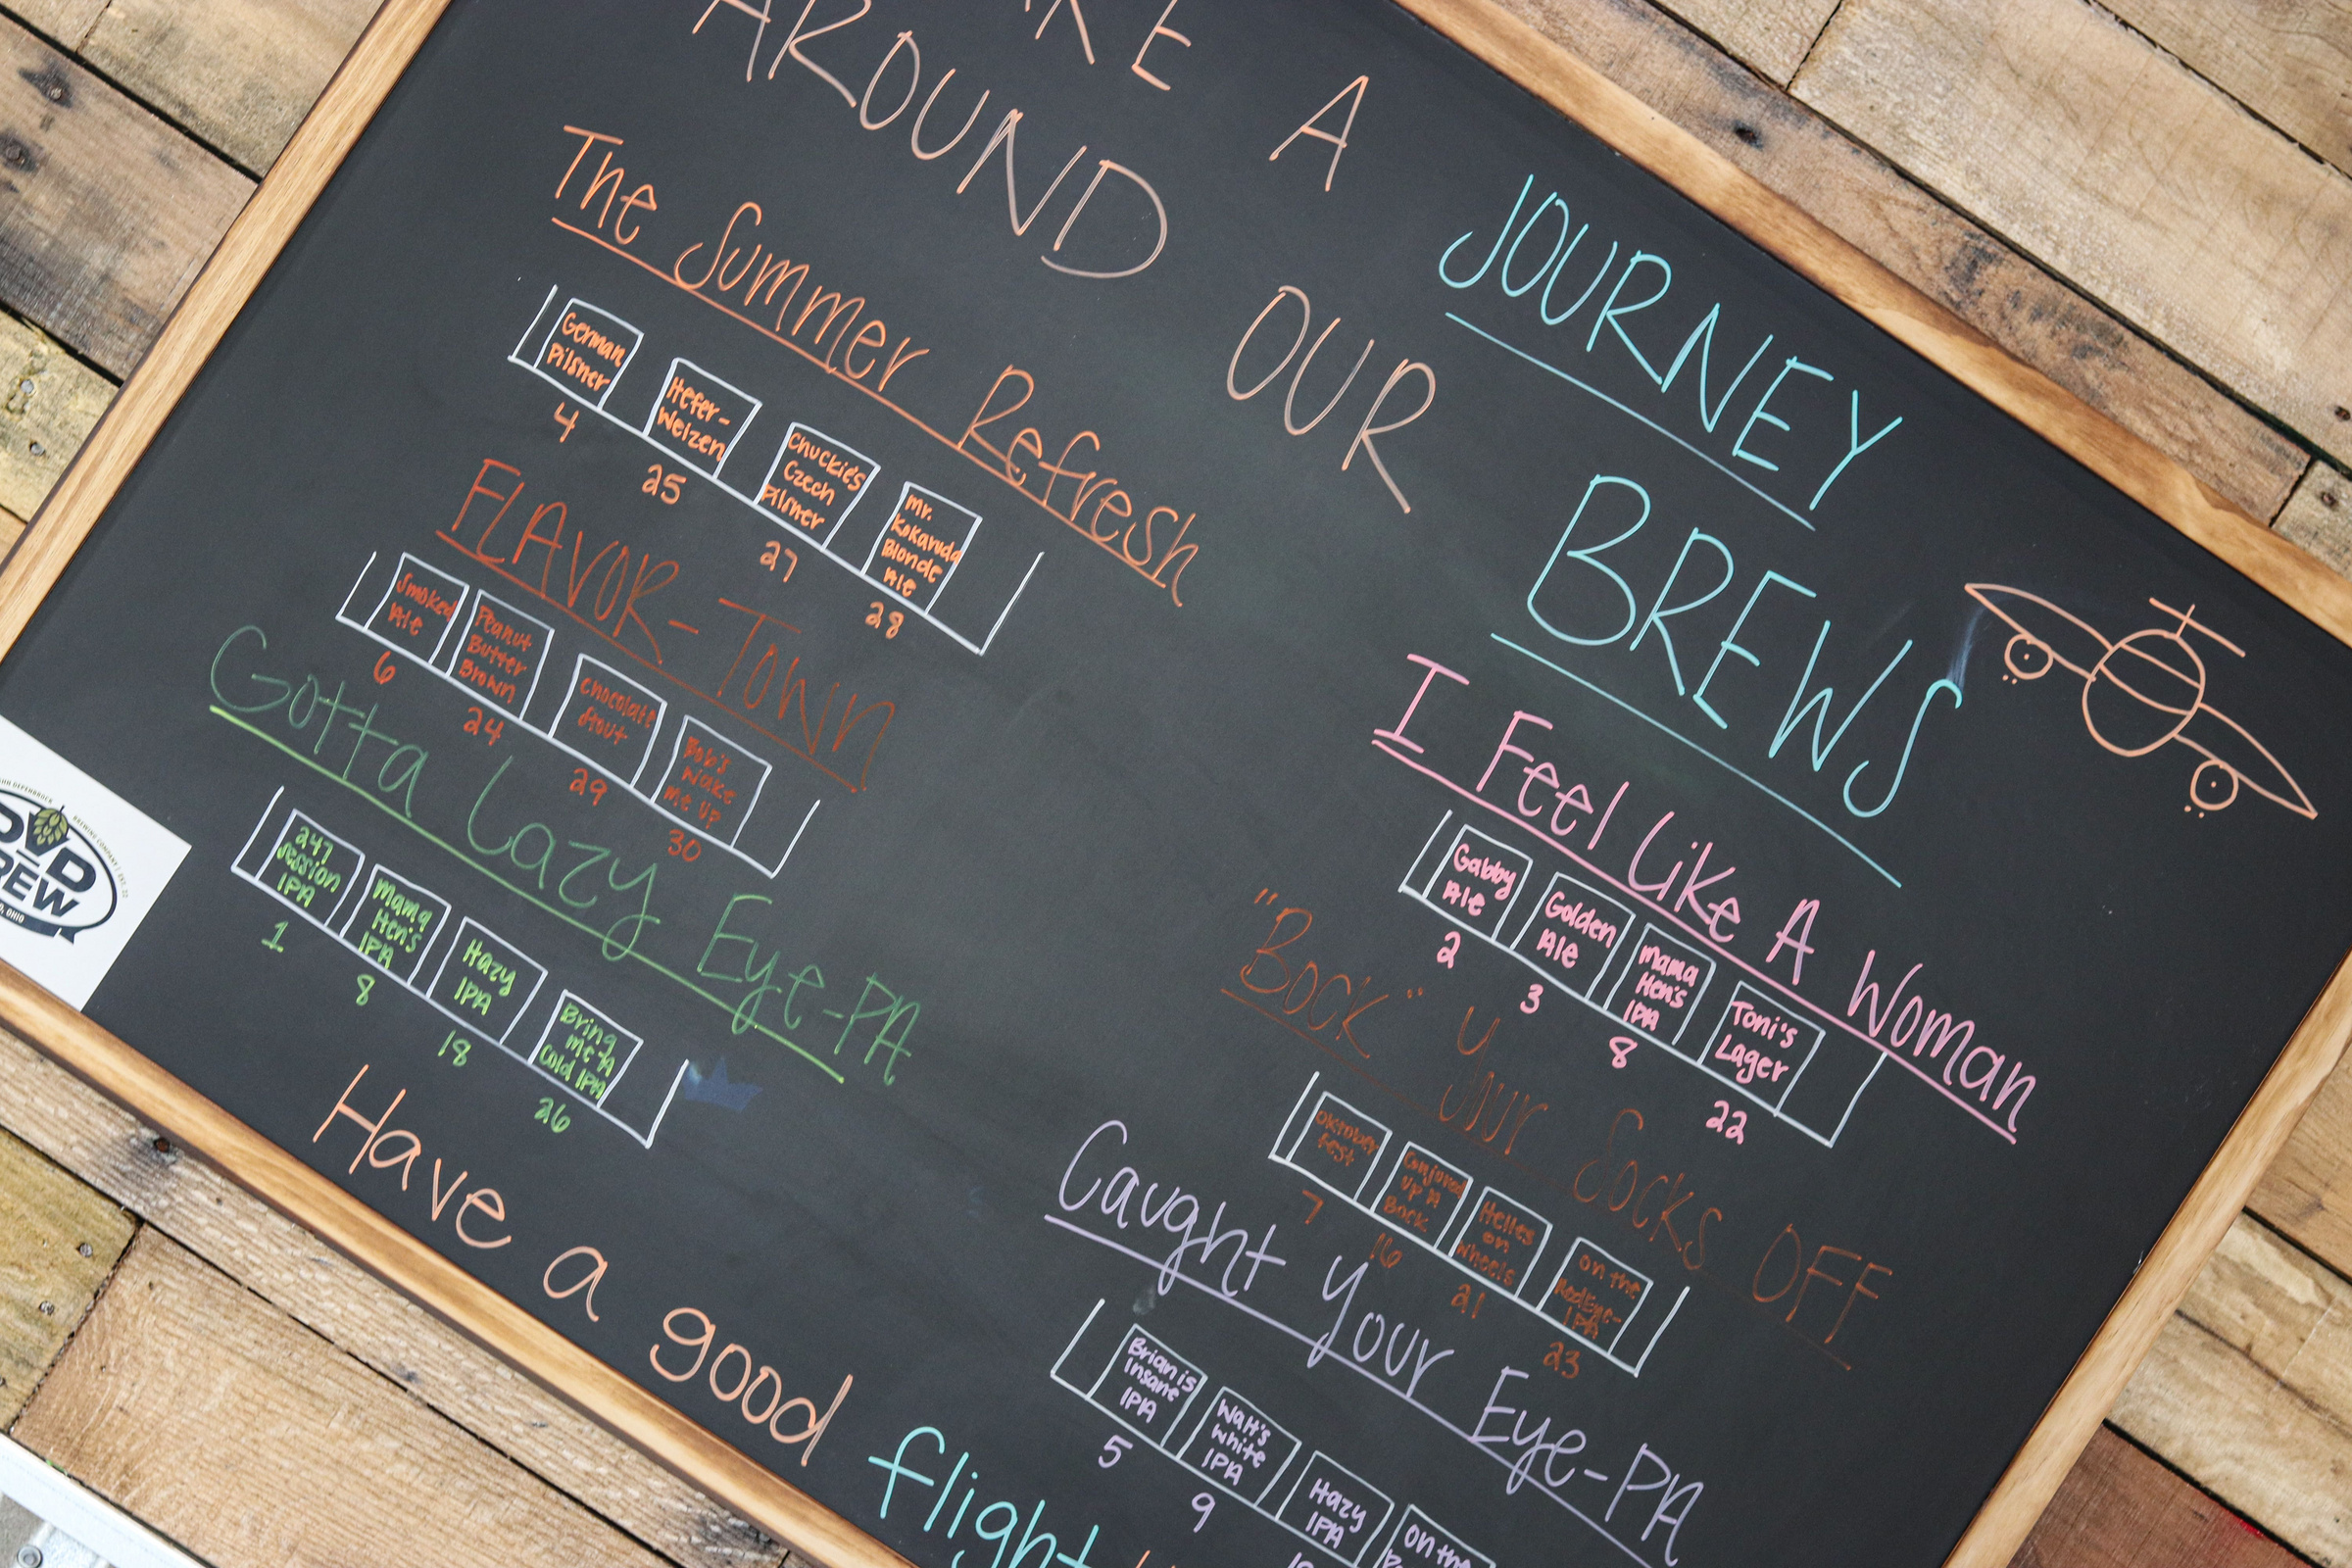 A JOURNEY
AROUND OUR BREWS
The Summer Refresh
German
Pilsner
4
Hefer-
Weizen
25
Chuckie's
Czech
Pilsner
27
Mr.
Kokaruda
Blonde
Ale
28
FLAVOR-Town
Smoked
Ale
6
Peanut
Butter
Brown
24
Chocolate
Stout
29
Bob's
Wake
me up
30
Gotta Lazy Eye-PA
247
Session
IPA
1
Mama
Hen's
IPA
8
Hazy
IPA
18
Bring
me A
Cold IPA
26
I Feel Like A Woman
Gabby
Ale
2
Golden
Ale
3
Mama
Hen's
IPA
8
Toni's
Lager
22
"Bock" Your Socks OFF
Oktober
Fest
7
Conjured
up A
Bock
16
Helles
on
Wheels
21
on the
RedEye-
IPA
23
Caught Your Eye-PA
Brian is
Insane
IPA
5
Walt's
White
IPA
9
Hazy
IPA
on the
Have a good flight
BREWING COMPANY
OHIO